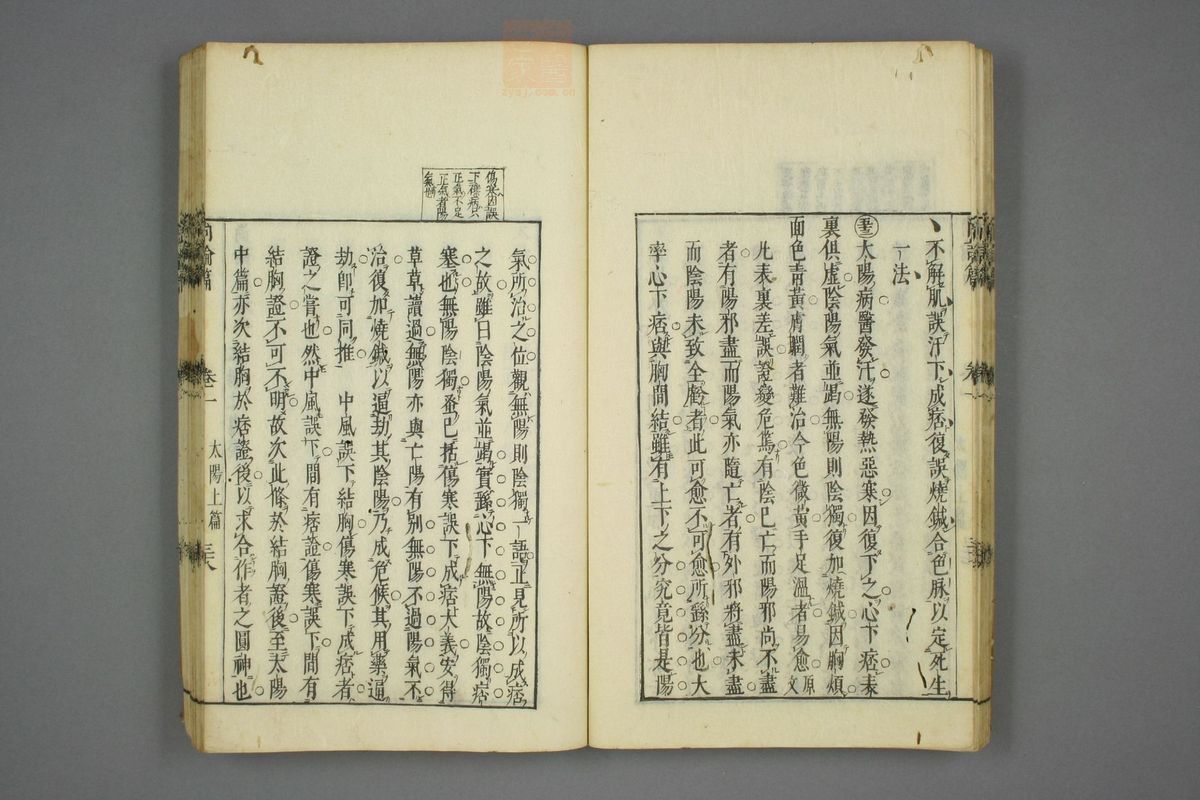 不解肌誤汗下成痞復誤燒鍼合色脉以定死生
一法
太陽病醫發汗遂發熱惡寒因復下之心下痞表
裏俱虛陰陽氣並竭無陽則陰獨復加燒鍼因胸煩
面色青黃膚瞤者難治今色微黃手足溫者易愈原文
凡表裏差誤證變危篤有陰已亡而陽邪尚不盡
者有陽邪盡而陽氣亦隨亡者有外邪將盡未盡
而陰陽未致全虧者此可愈不可愈所繇分也大
率心下痞與胸間結雖有上下之分究竟皆是陽
尚論篇 卷一 太陽上篇 三六
傷寒因誤
下釀病只
正氣不足
正氣者陽
氣也
氣所治之位觀無陽則陰獨一語正見所以成痞
之故雖曰陰陽氣並竭實繇心下無陽故陰獨痞
塞也無陽陰獨蚤已括傷寒誤下成痞大義安得
草草讀過無陽亦與亡陽有別無陽不過陽氣不
治復加燒鍼以逼劫其陰陽乃成危候其用藥逼
劫卽可同推 中風誤下結胸傷寒誤下成痞者
證之嘗也然中風誤下間有痞證傷寒誤下間有
結胸證不可不明故次此條於結胸證後至太陽
中篇亦次結胸於痞證後以求合作者之圓神也
zysj.com.cn